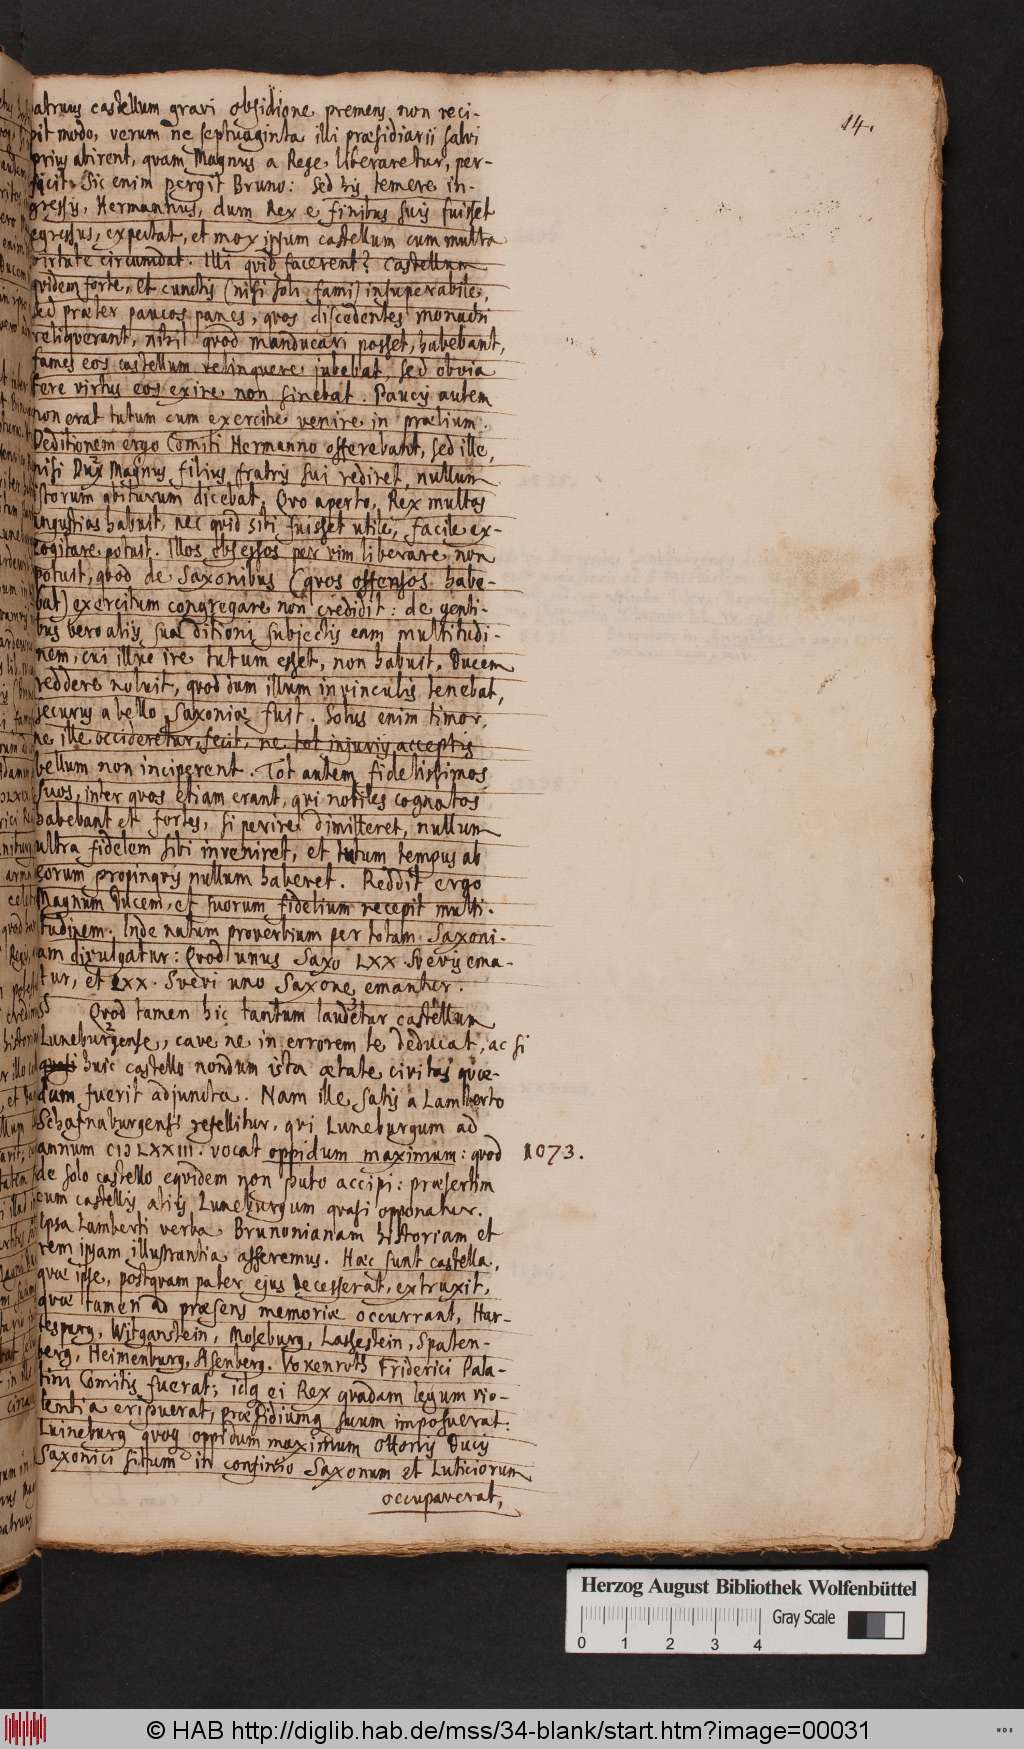 14.
patruus castellum gravi obsidione premens non reci-
pit modo, verum ne septuaginta illi præsidiarii salvi
prius abirent, quam Magnus a Rege liberaretur, per-
ficit. Sic enim pergit Bruno: Sed his temere in-
gressis, Hermannus, dum Rex e finibus suis fuisset
egressus, expectat, et mox ipsum castellum cum multa
virtute circumdat. Illi quid facerent? Castellum
quidem forte, et cunctis (nisi soli fami) insuperabile,
sed præter paucos panes, quos discedentes monachi
reliquerant, nihil quod manducari posset, habebant,
fames eos castellum relinquere jubebat, sed obvia
fere virtus eos exire non sinebat. Paucis autem
non erat tutum cum exercitu venire in prælium.
Deditionem ergo Comiti Hermanno offerebant, sed ille,
nisi Dux Magnus filius fratris sui rediret, nullum
istorum abiturum dicebat. Quo aperto, Rex multas
angustias habuit, nec quid sibi fuisset utile, facile ex-
cogitare potuit. Illos obsessos per vim liberare non
potuit, quod de Saxonibus (quos offensos habe-
bat) exercitum congregare non credidit: de genti-
bus vero aliis suæ ditioni subjectis eam multitudi-
nem, cui illuc ire tutum esset, non habuit. Ducem
reddere noluit, quod dum illum in vinculis tenebat,
securus a bello Saxoniæ fuit. Solus enim timor,
ne ille occideretur, fecit, ne tot injuriis acceptis
bellum non inciperent. Tot autem fidelissimos
suos, inter quos etiam erant, qui nobiles cognatos
habebant et fortes, si perire dimitteret, nullum
ultra fidelem sibi inveniret, et tutum tempus ab
eorum propinquis nullum haberet. Reddit ergo
Magnum Ducem, et suorum fidelium recepit multi-
tudinem. Inde natum proverbium per totam Saxoni-
am divulgatur: Quod unus Saxo LXX Svevis ema-
tur, et LXX. Svevi uno Saxone emantur.
Quod tamen hic tantum laudetur castellum
Luneburgense, cave ne in errorem te deducat, ac si
quasi huic castello nondum ista ætate civitas quæ-
dam fuerit adjuncta. Nam ille satis a Lamberto
Schafnaburgensi refellitur, qui Luneburgum ad
annum CIↃLXXIII. vocat oppidum maximum: quod 1073.
de solo castello equidem non puto accipi: præsertim
cum castellis aliis Luneburgum quasi opponatur.
Ipsa Lamberti verba Brunonianam historiam et
rem ipsam illustrantia asseremus. Hæc sunt castella,
quæ ipse, postquam pater ejus decesserat, extruxit,
quæ tamen ad præsens memoriæ occurrant, Har-
tesburg, Witganstein, Moseburg, Lassestein, Spaten-
berg, Heimenburg, Asenberg. Voxenroth Friderici Pala-
tini Comitis fuerat; idq ei Rex quadam legum vio-
lentia eripuerat, præsidiumq suum imposuerat:
Luineburg quoq oppidum maximum Ottonis Ducis
Saxonici situm in confinio Saxonum et Luticiorum
occupaverat,
Herzog August Bibliothek Wolfenbüttel
Gray Scale
0 1 2 3 4
© HAB http://diglib.hab.de/mss/34-blank/start.htm?image=00031